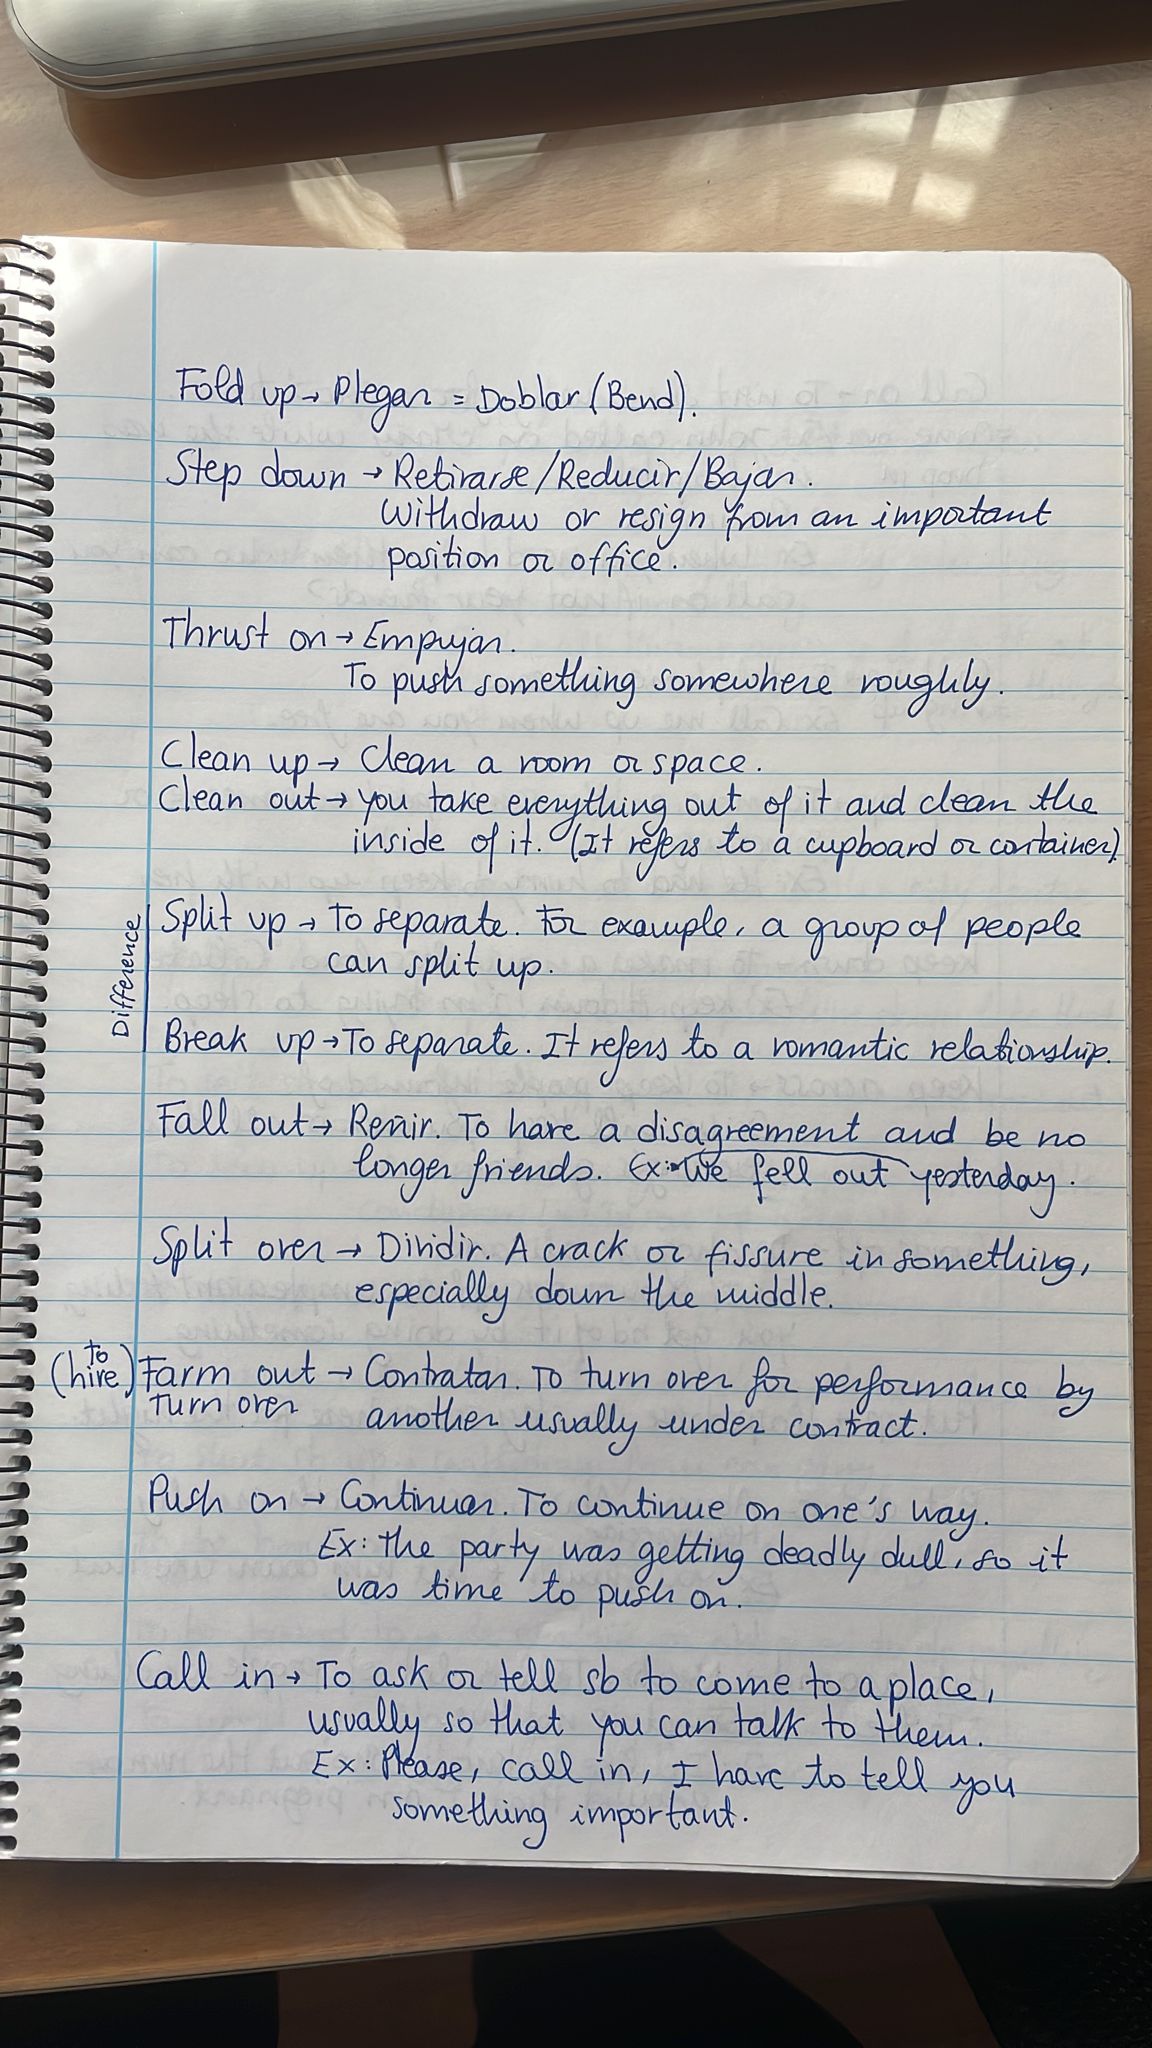 Fold up → Plegar = Doblar (Bend).
Step down → Retirarse/Reducir/Bajar.
Withdraw or resign from an important
position or office.
Thrust on → Empujar.
To push something somewhere roughly.
Clean up → Clean a room or space.
Clean out → you take everything out of it and clean the
inside of it. (It refers to a cupboard or container).
Difference
Split up → To separate. For example, a group of people
can split up.
Break up → To separate. It refers to a romantic relationship.
Fall out → Reñir. To have a disagreement and be no
longer friends. Ex: We fell out yesterday.
Split over → Dividir. A crack or fissure in something,
especially down the middle.
(to hire) Farm out → Contratar. To turn over for performance by
Turn over another usually under contract.
Push on → Continuar. To continue on one's way.
Ex: the party was getting deadly dull, so it
was time to push on.
Call in → To ask or tell sb to come to a place,
usually so that you can talk to them.
Ex: Please, call in, I have to tell you
something important.